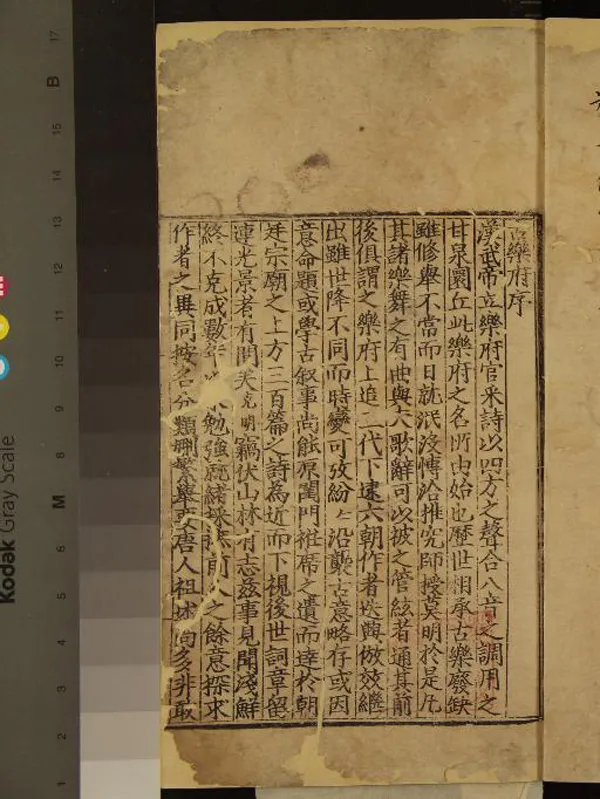 古樂府序
漢武帝立樂府官采詩以四方之聲合八音之調用之
甘泉圜丘此樂府之名所由始也歷世相承古樂廢缺
雖修舉不常而日就泯沒愽洽推究師授莫明於是凡
其諸樂舞之有曲與夫歌辭可以被之管絃者通其前
後俱謂之樂府上追三代下逮六朝作者迭興倣效繼
出雖世降不同而時變可攷紛〻沿襲古意略存或因
意命題或學古叙事尚能原閨門袵席之遺而達於朝
廷宗廟之上方三百篇之詩為近而下視後世詞章留
連光景者有間矣克明竊伏山林有志茲事見聞淺鮮
終不克成數年以來勉強就緒採摭前人之餘意探求
作者之異同按名分類刪繁舉要唐人祖述尚多非敢
Kodak Gray Scale
17
B
15
14
13
12
11
10
9
8
M
6
5
4
3
2
1